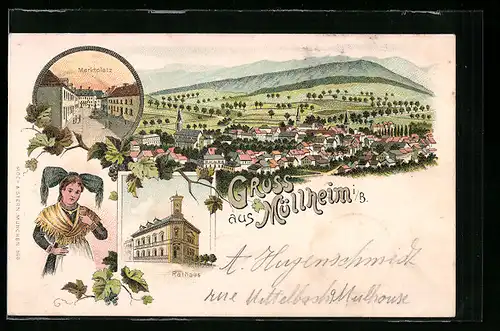 Marktplatz
GRUSS
aus Müllheim i/B.
Rathaus
A. Hugenschmidt
rue Mittelbach Mulhouse